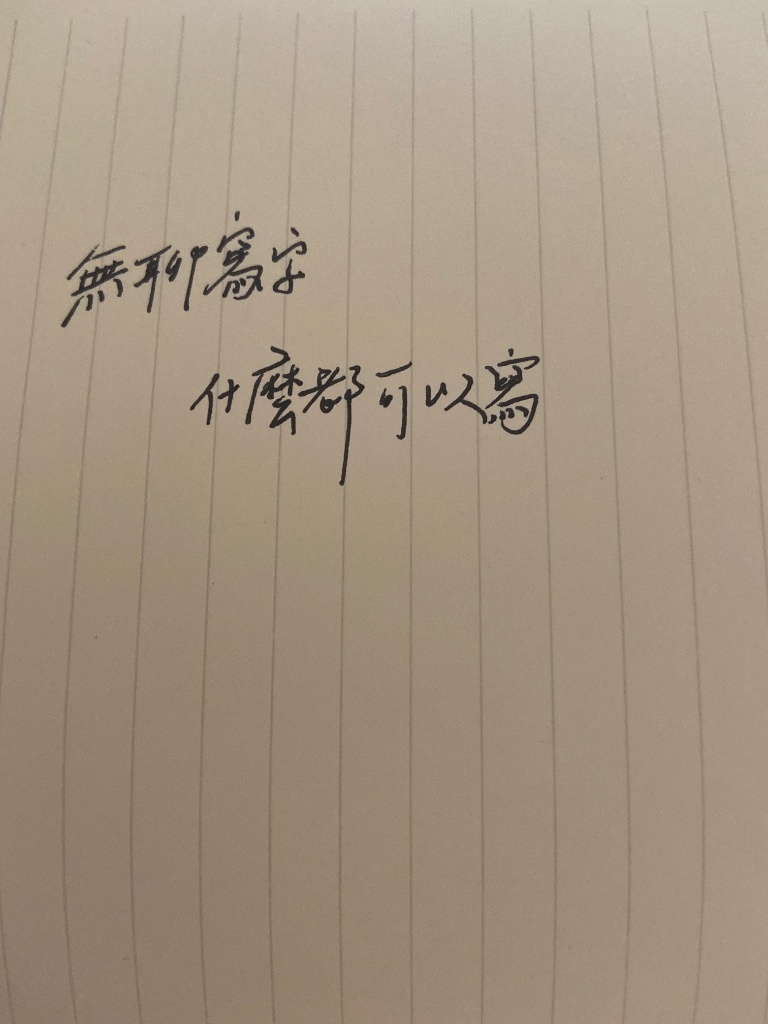 無聊寫字
什麼都可以寫